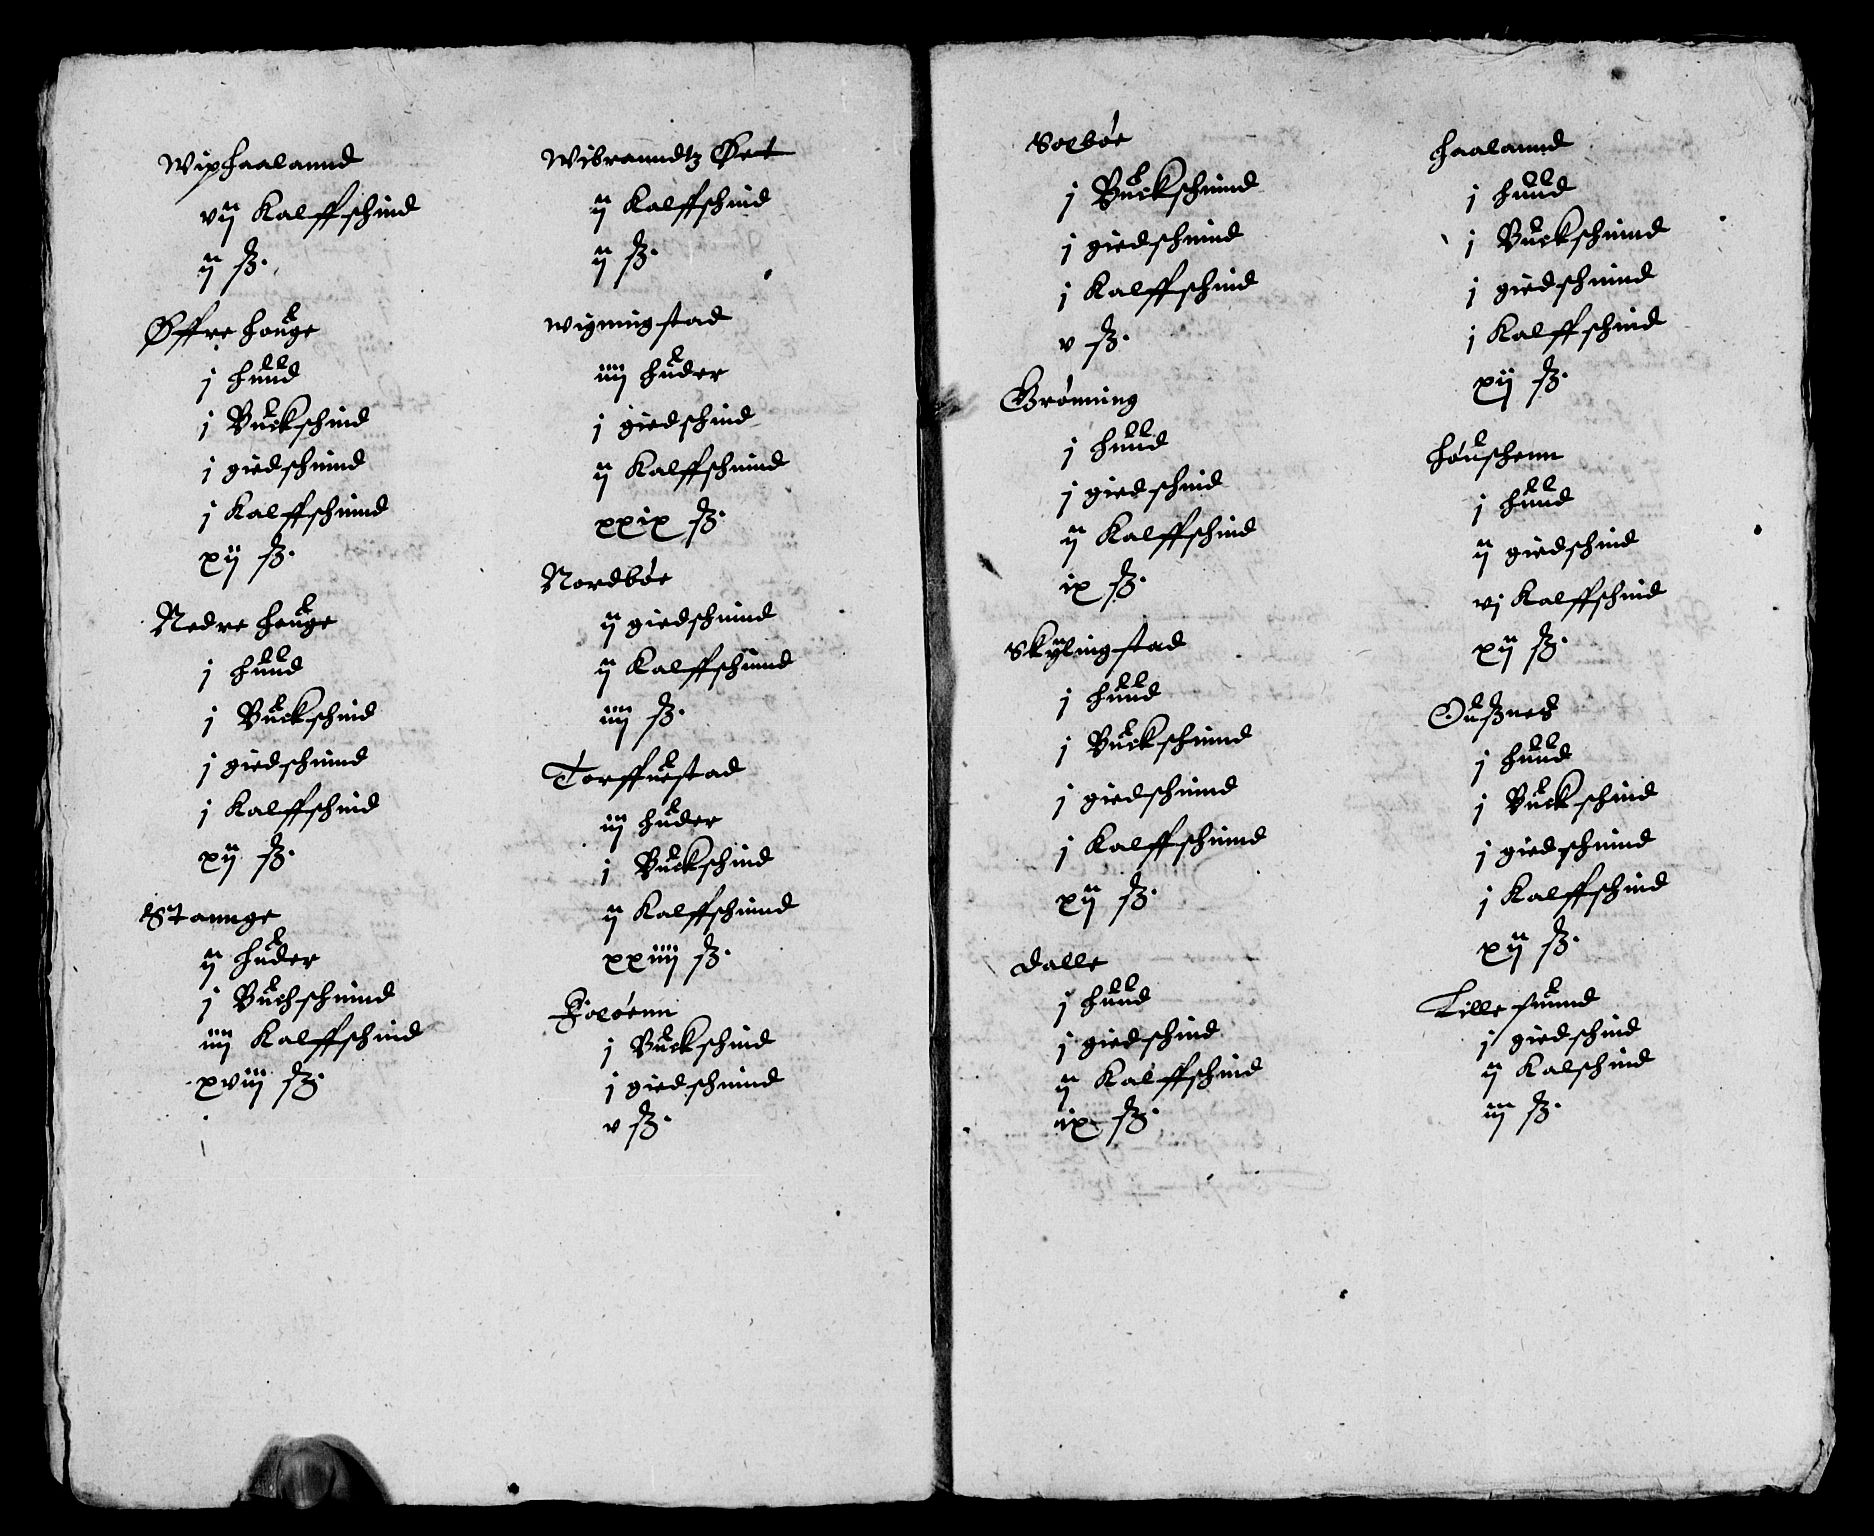 Wixhaalannd
vij Kalffschind
ij ß.
Øffre Houge
j Huud
j Buckschind
j giedschinnd
j Kalffschinnd
xij ß.
Nedre Houge
j Huud
j Buckschind
j giedschinnd
j Kalffschind
xij ß.
Stannge
ij Huder
j Buchschinnd
iiij Kalffschind
xviij ß.
Wibranndtz Øet
ij Kalffschind
ij ß.
Wijningstad
iiij Huder
j giedschind
ij Kalffschinnd
xxix ß.
Nordbøe
ij giedschinnd
ij Kalffschinnd
iiij ß.
Torffuestad
iij Huder
j Buckschind
ij Kalffschinnd
xxiiij ß.
Foløenn
j Buckschind
j giedschinnd
v ß.
Solbøe
j Buckschinnd
j giedschinnd
j Kalffschind
v ß.
Grønning
j Huud
j giedschind
ij Kalffschind
ix ß.
Skÿlingstad
j Huud
j Buckschinnd
j giedschinnd
j Kalffschinnd
xij ß.
Dalle
j Huud
j giedschind
ij Kalffschind
ix ß.
Haalannd
j Huud
j Buckschinnd
j giedschinnd
j Kalffschind
xij ß.
Høuschenn
j Huud
ij giedschind
vj Kalffschind
xij ß.
Oußnes
j Huud
j Buckschind
j giedschinnd
j Kalffschind
xij ß.
Lille sunnd
j giedschind
ij Kalschind
iij ß.